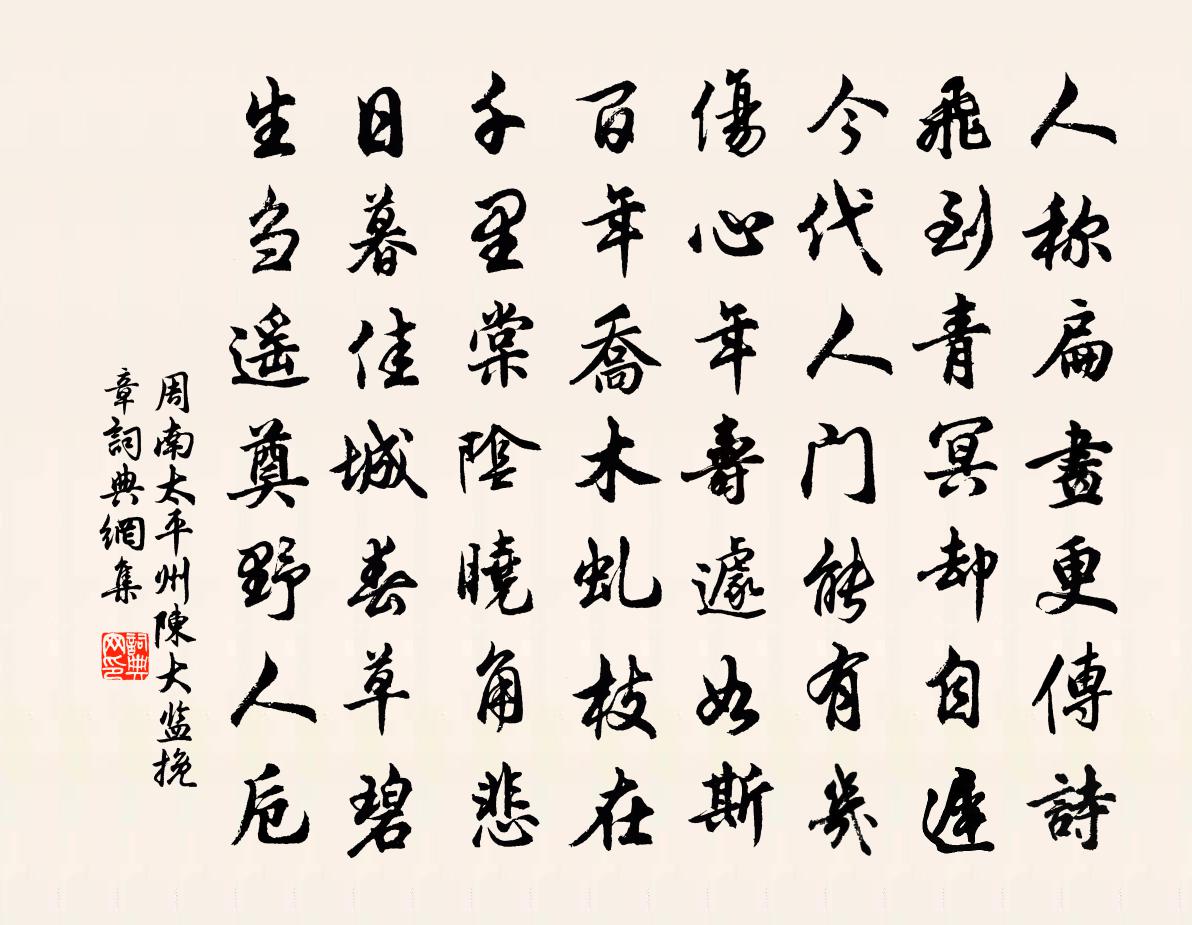 人称扁畫更傳詩
飛到青冥却自遲
今代人门能有幾
傷心年壽遽如斯
百年喬木虬枝在
千里棠陰曉角悲
日暮佳城春草碧
生刍遥奠野人卮
周南太平州陳大监挽
章詞典網集